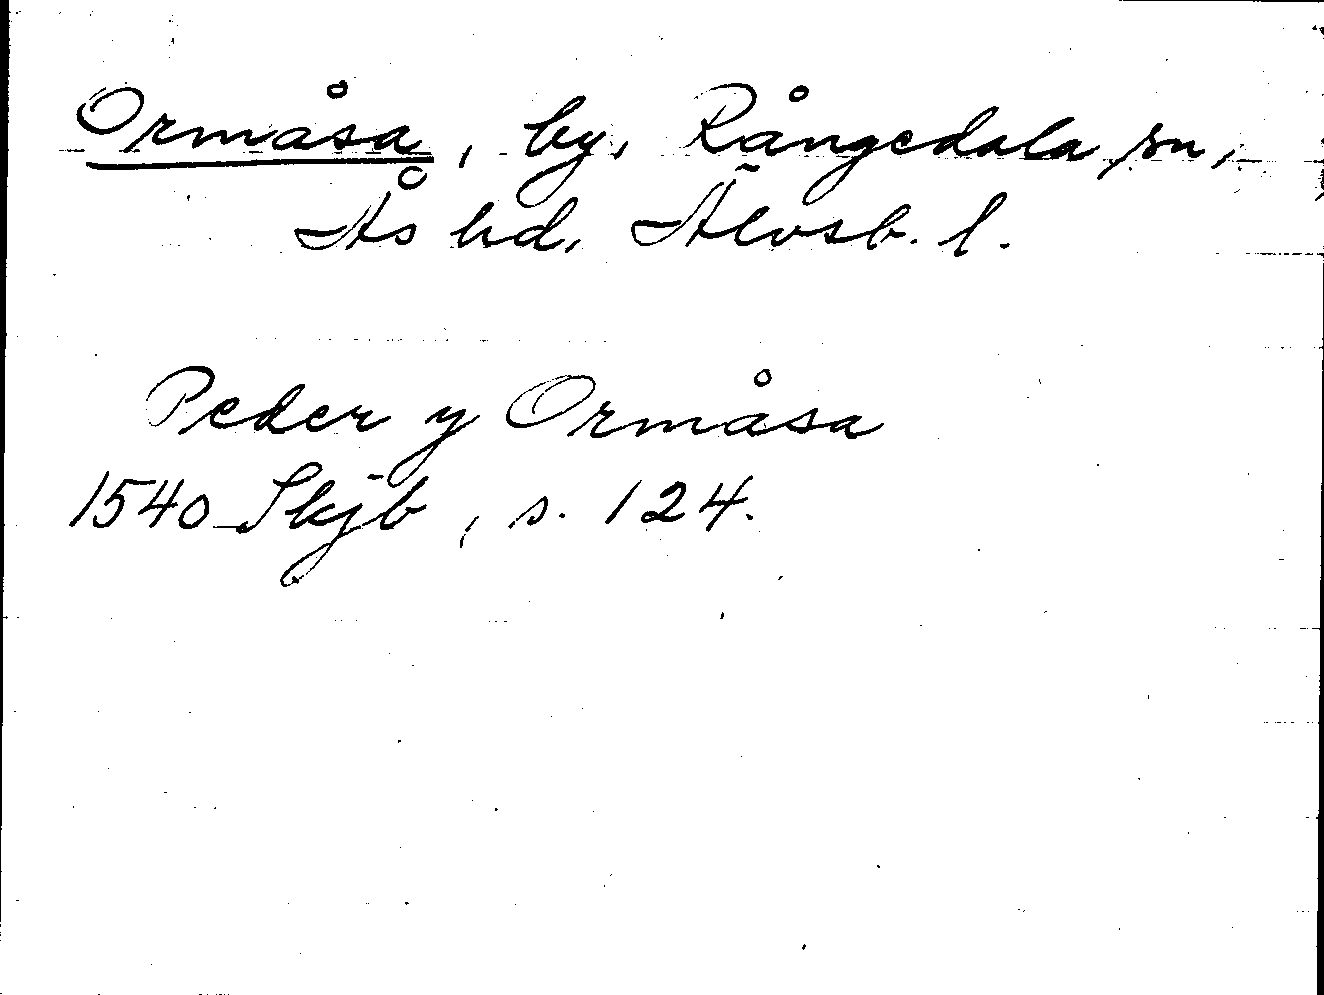 Ormåsa, by, Rångedala sn,
Ås hd, Älvsb. l.
Peder y Ormåsa
1540 Skjb, s. 124.